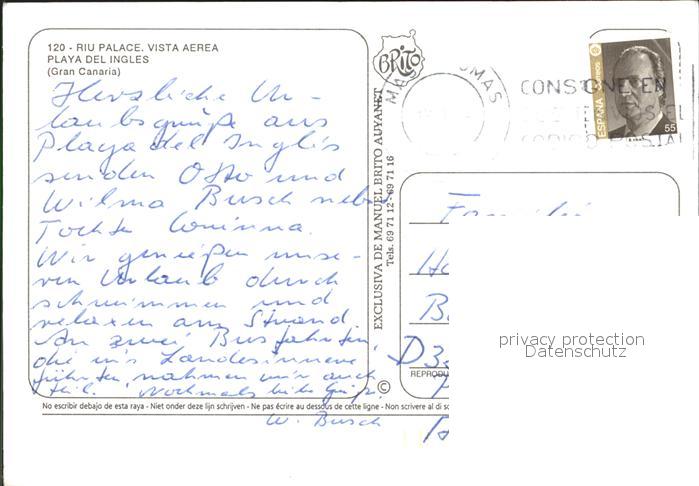 120 - RIU PALACE. VISTA AEREA
PLAYA DEL INGLES
(Gran Canaria)
Herzliche Ur-
laubsgrüße aus
Playa del Inglés
senden Otto und
Wilma Busch nebst
Tochter Corinna.
Wir genießen unse-
ren Urlaub durch
schwimmen und
relaxen am Strand.
An zwei Busfahrten,
die ins Landesinnere
führten, nahmen wir auch
teil. Nochmals liebe Grüße,
W. Busch
BRITO
EXCLUSIVA DE MANUEL BRITO AUYANET
Tels. 69 71 12 - 69 71 16
©
MAS OMAS
CONSIGNE EN
SU EL
CODIGO POSTAL
ESPAÑA
correos
55
Familie
D3
REPRODU
privacy protection
Datenschutz
No escribir debajo de esta raya - Niet onder deze lijn schrijven - Ne pas écrire au dessous de cette ligne - Non scrivere al di so